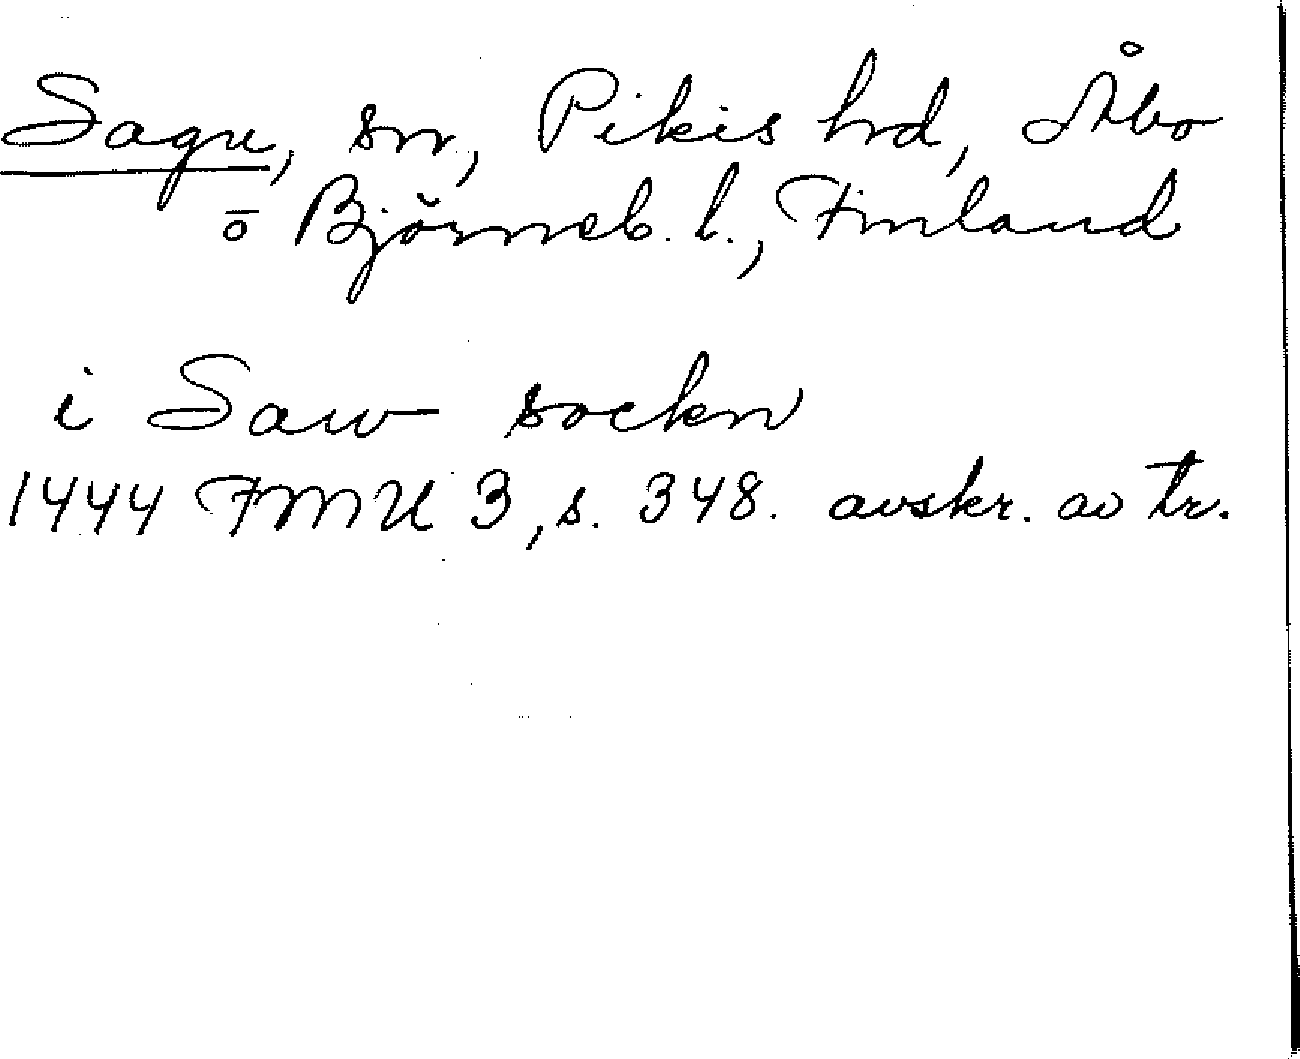 Sagu, sn, Pikis hd, Åbo
o Björneb. l., Finland
i Saw sockn
1444 FMU 3, s. 348. avskr. av tr.